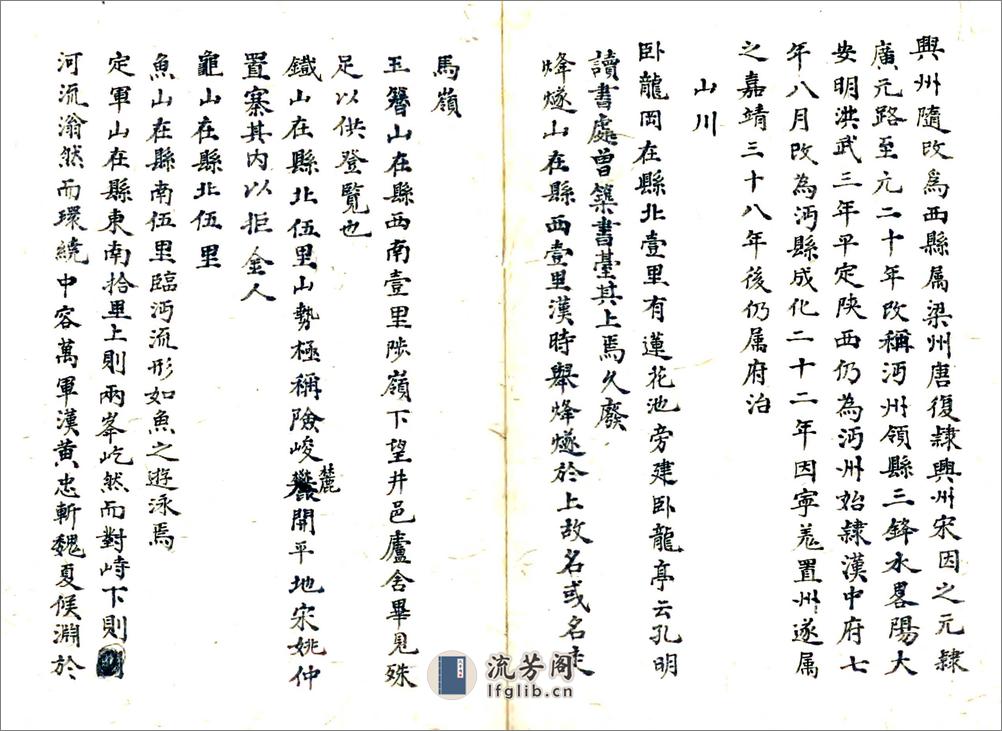 興州隨改爲西縣属梁州唐復隷興州宋因之元隷
廣元路至元二十年改稱沔州領縣三鋒水畧陽大
安明洪武三年平定陕西仍為沔州始隷漢中府七
年八月改為沔縣成化二十二年因寧羌置州遂属
之嘉靖三十八年後仍属府治
山川
卧龍岡在縣北壹里有蓮花池旁建卧龍亭云孔明
讀書處曾築書臺其上焉久廢
烽燧山在縣西壹里漢時舉烽燧於上故名或名走
馬嶺
玉簪山在縣西南壹里陟嶺下望井邑廬舍畢見殊
足以供登覽也
鐡山在縣北伍里山勢極稱險峻麓開平地宋姚仲
置寨其内以拒金人
龜山在縣北伍里
魚山在縣南伍里臨沔流形如魚之遊泳焉
定軍山在縣東南拾里上則兩峯屹然而對峙下則
河流滃然而環繞中容萬軍漢黄忠斬魏夏候淵於
流芳阁
lfglib.cn